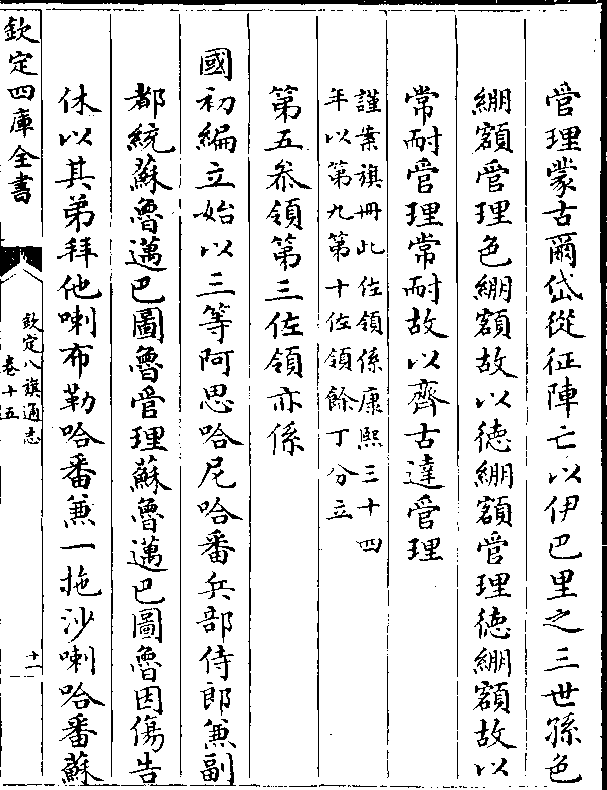 管理蒙古爾岱從征陣亡以伊巴里之三世孫色
綳額管理色綳額故以徳綳額管理徳綳額故以
常耐管理常耐故以齊古達管理
謹案旗冊此佐領係康熙三十四
年以第九第十佐領餘丁分立
第五叅領第三佐領亦係
國初編立始以三等阿思哈尼哈番兵部侍郎兼副
都統蘇魯邁巴圖魯管理蘇魯邁巴圖魯因傷告
休以其弟拜他喇布勒哈番兼一拖沙喇哈番蘇
欽定四庫全書
欽定八旗通志
卷十五
十一